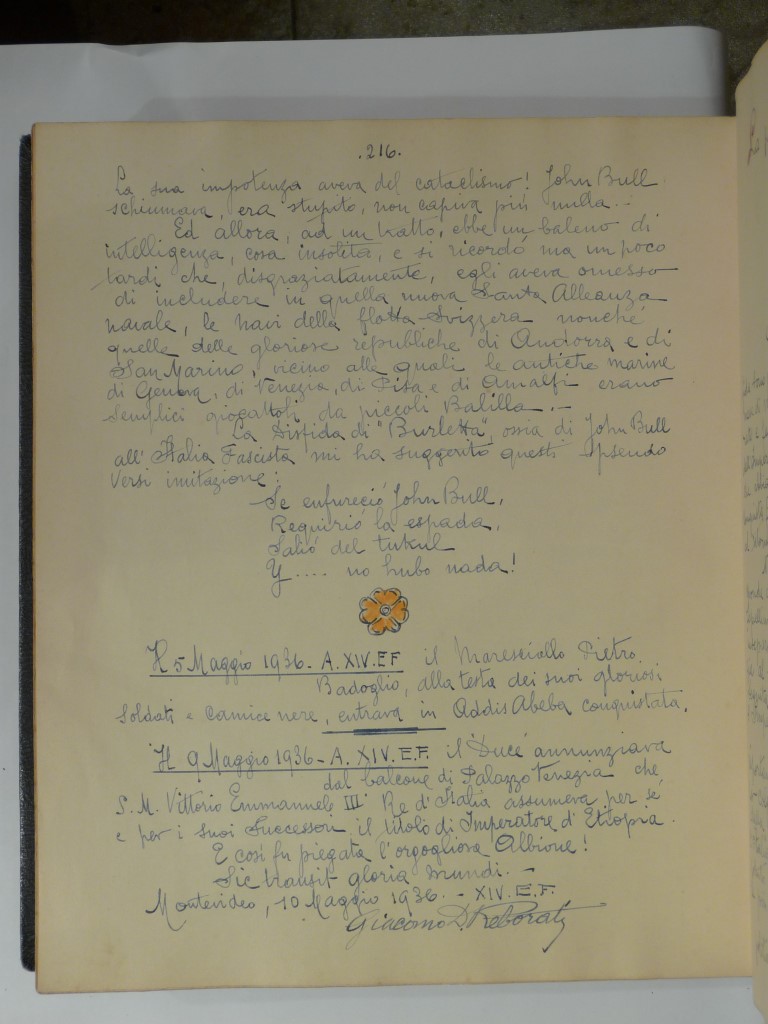 .216.
La sua impotenza aveva del cataclismo! John Bull
schiumava, era stupito, non capiva più nulla.-
Ed allora, ad un tratto, ebbe un baleno di
intelligenza, cosa insolita, e si ricordó ma un poco
tardi che, disgraziatamente, egli aveva omesso
di includere in quella nuova Santa Alleanza
navale, le navi della flotta Svizzera nonché
quelle delle gloriose republiche di Andorra e di
San Marino, vicino alle quali le antiche marine
di Genova, di Venezia, di Pisa e di Amalfi erano
semplici giocattoli da piccoli Balilla.-
La Disfida di "Burletta", ossia di John Bull
all'Italia Fascista mi ha suggerito questi pseudo
versi imitazione:
Se enfureció John Bull,
Requirió la espada,
Salió del tukul
Y.... no hubo nada!
Il 5 Maggio 1936 - A. XIV. E F il Maresciallo Pietro
Badoglio, alla testa dei suoi gloriosi
soldati e Camice nere, entrava in Addis Abeba conquistata.
Il 9 Maggio 1936 - A. XIV. E. F. il Duce annunziava
dal balcone di Palazzo Venezia che
S. M. Vittorio Emmanuele III Re d'Italia assumeva per sé
e per i suoi Successori il titolo di Imperatore d'Etiopia.
E cosí fu piegata l'orgogliosa Albione!
Sic transit gloria mundi.-
Montevideo, 10 Maggio 1936.- XIV. E. F.
Giacomo D. Reborati